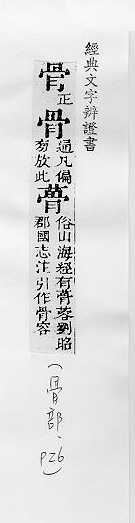 經典文字辨證書
骨正
骨通凡偏
旁放此
蓇俗山海經有蓇蓉劉昭
郡國志注引作骨容
(骨部、P26)